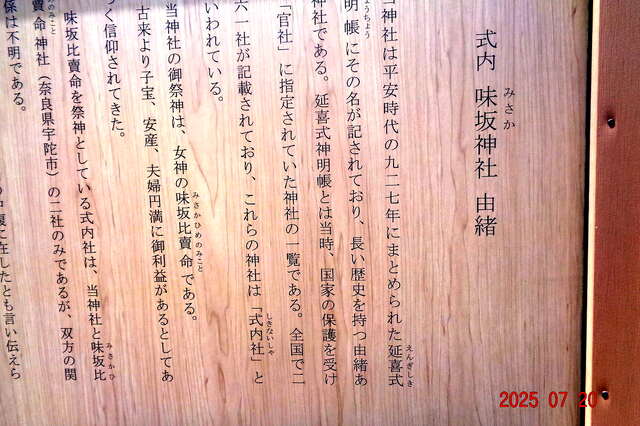 式内 味坂神社 由緒
みさか
当神社は平安時代の九二七年にまとめられた延喜式
えんぎしき
明帳にその名が記されており、長い歴史を持つ由緒あ
ょうちょう
神社である。延喜式神明帳とは当時、国家の保護を受け
「官社」に指定されていた神社の一覧である。全国で二
六一社が記載されており、これらの神社は「式内社」と
しきないしゃ
いわれている。
当神社の御祭神は、女神の味坂比賣命である。
みさかひめのみこと
古来より子宝、安産、夫婦円満に御利益があるとしてあ
く信仰されてきた。
味坂比賣命を祭神としている式内社は、当神社と味坂比
みさかひ
賣命神社（奈良県宇陀市）の二社のみであるが、双方の関
めのみこと
係は不明である。
に在したとも言い伝えら
2025 07 20